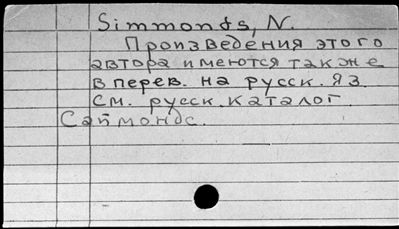 Simmonds, N.
Произведения этого
автора имеются также
в перев. на русск. яз.
См. русск. каталог.
Саймондс.